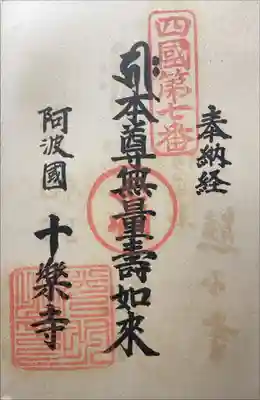 奉納経
四國第七番
本尊無量壽如來
阿波國
十樂寺